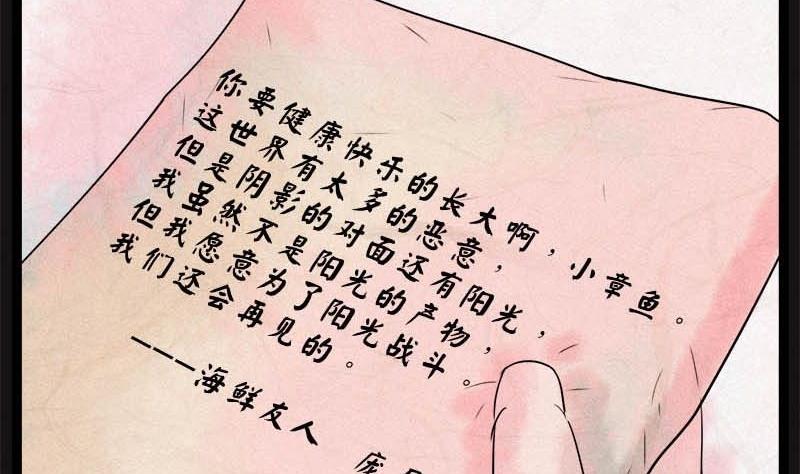 你要健康快乐的长大啊，小章鱼。
这世界有太多的恶意，
但是阴影的对面还有阳光，
我虽然不是阳光的产物，
但我愿意为了阳光战斗。
我们还会再见的。
———海鲜友人
庞